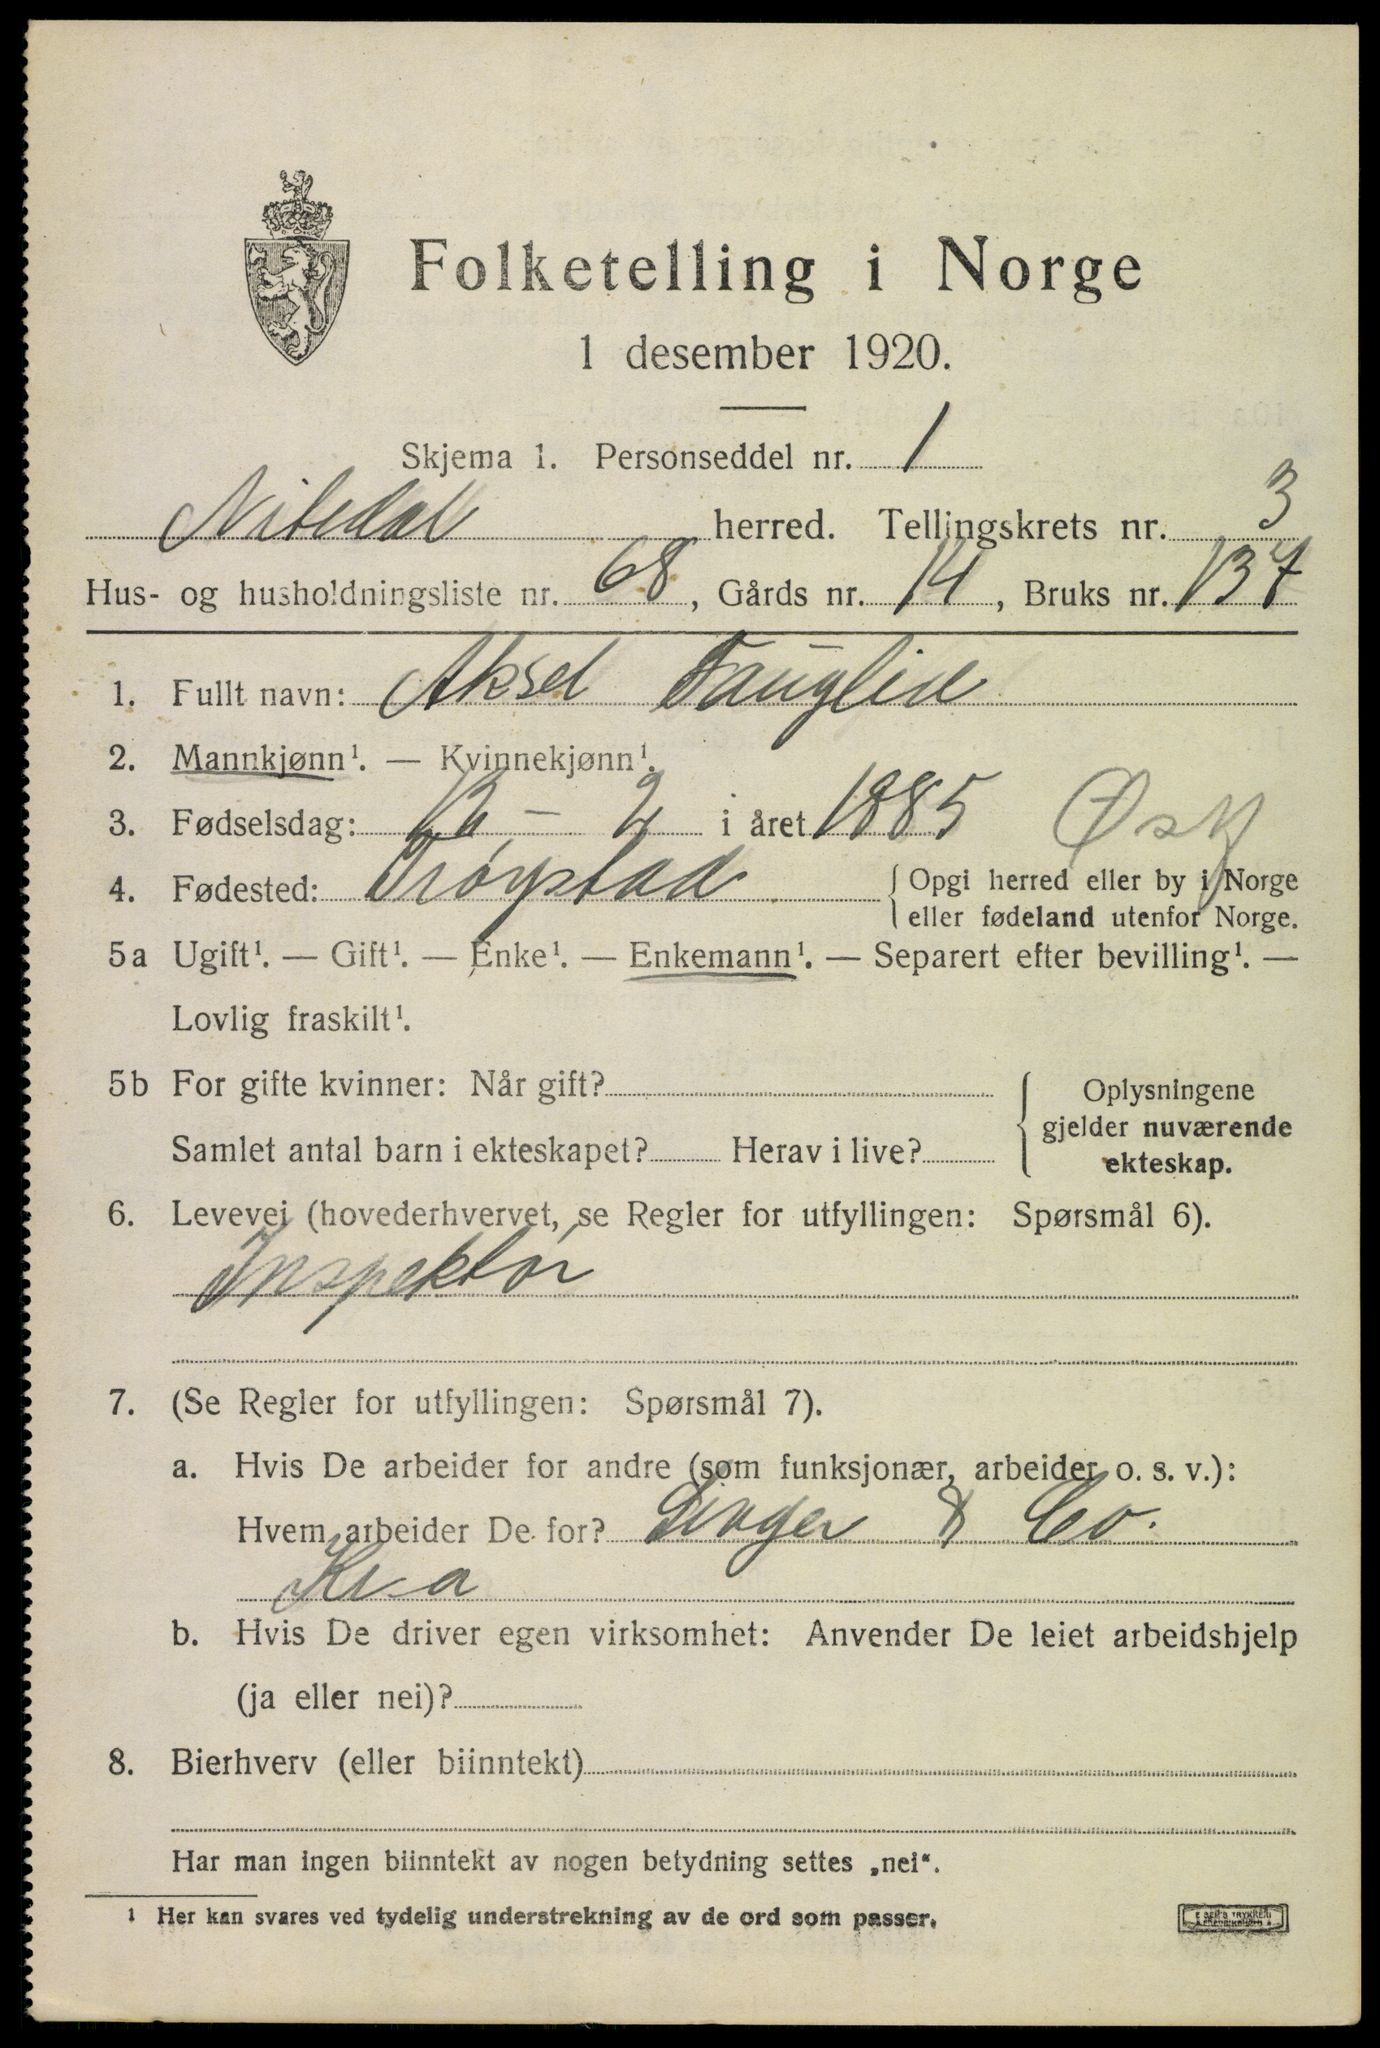 Folketelling i Norge
1 desember 1920.
Skjema 1. Personseddel nr. 1
Nitedal herred. Tellingskrets nr. 3
Hus- og husholdningsliste nr. 68, Gårds nr. 14, Bruks nr. 137
1. Fullt navn: Aksel Fauglid
2. Mannkjønn¹. — Kvinnekjønn¹.
3. Fødselsdag: — 2 i året 1885 Østf
4. Fødested: Trøgstad {Opgi herred eller by i Norge
eller fødeland utenfor Norge.
5a Ugift¹. — Gift¹. — Enke¹. — Enkemann¹. — Separert efter bevilling¹. —
Lovlig fraskilt¹.
5b For gifte kvinner: Når gift?
Samlet antal barn i ekteskapet? Herav i live?
{Oplysningene
gjelder nuværende
ekteskap.
6. Levevei (hovederhvervet, se Regler for utfyllingen: Spørsmål 6).
Inspektør
7. (Se Regler for utfyllingen: Spørsmål 7).
a. Hvis De arbeider for andre (som funksjonær, arbeider o. s. v.):
Hvem arbeider De for? Singer & Co.
Kr.a
b. Hvis De driver egen virksomhet: Anvender De leiet arbeidshjelp
(ja eller nei)?
8. Bierhverv (eller biinntekt)
Har man ingen biinntekt av nogen betydning settes „nei“.
¹ Her kan svares ved tydelig understrekning av de ord som passer.